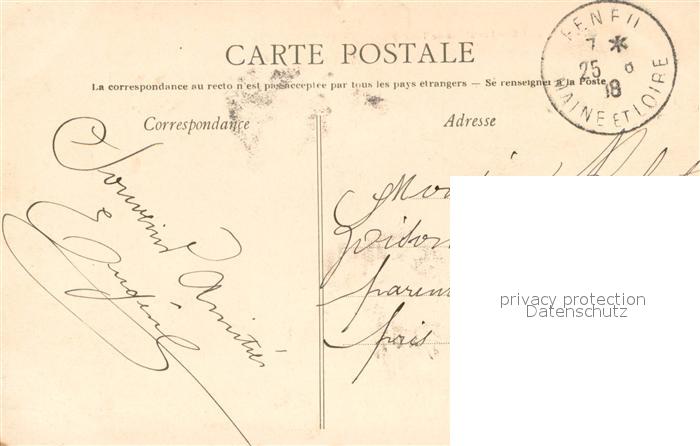 CARTE POSTALE
La correspondance au recto n'est pas acceptée par tous les pays étrangers — Se renseigner à la Poste
FENEU
7 * 25 8 18
MAINE ET LOIRE
Correspondance
Adresse
Souvenir
Amitiés
Eugénie
privacy protection
Datenschutz